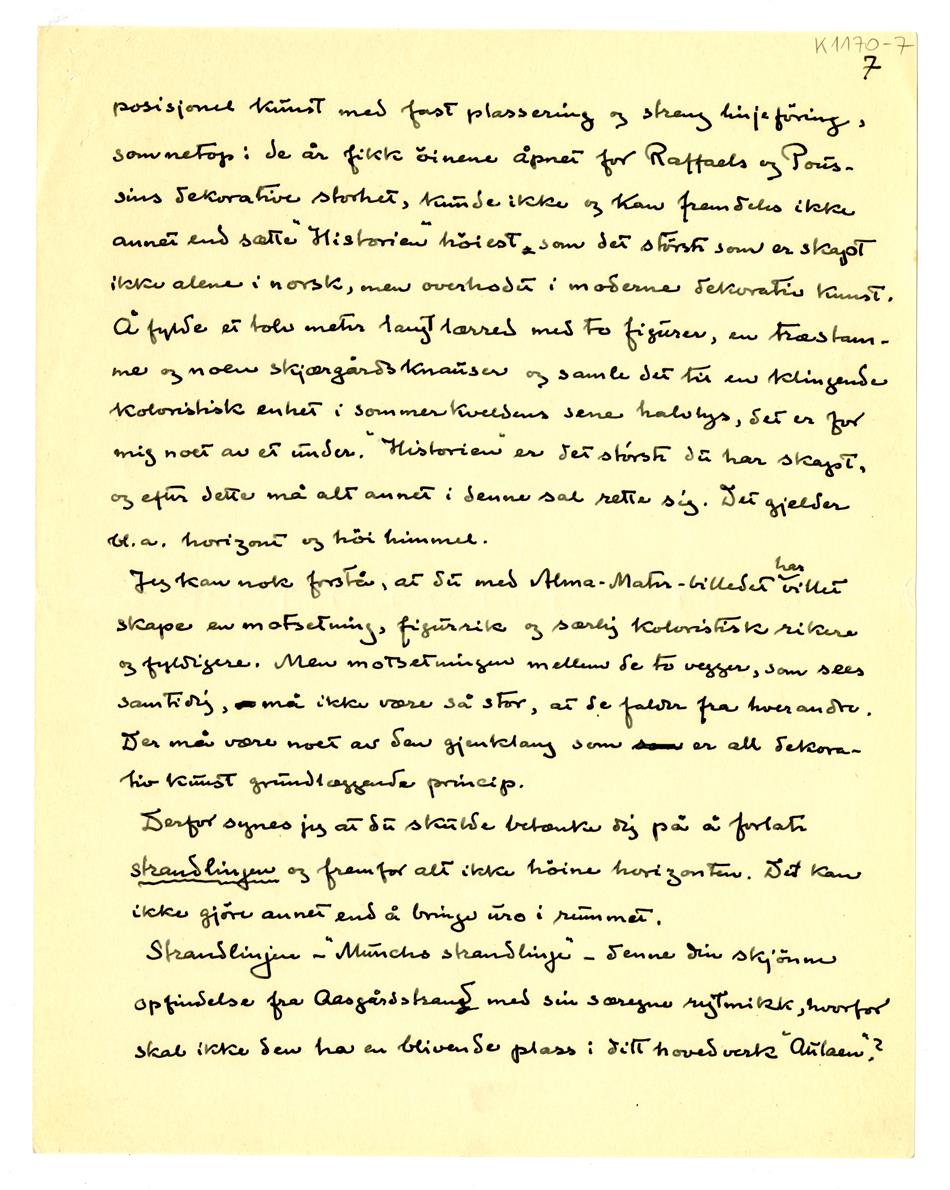 K1170-7
7
posisjonel kunst med fast plassering og streng linjeföring,
som netop i de år fikk öinene åpnet for Raffaels og Pous-
sins dekorative storhet, kunde ikke og kan fremdeles ikke
annet end sætte "Historien" höiest, som det störste som er skapt
ikke alene i norsk, men overhodet i moderne dekorativ kunst.
Å fylde et tolv meter langt lærred med to figurer, en træstam-
me og noen skjærgårdsknauser og samle det til en klingende
koloristisk enhet i sommerkveldens sene halvlys, det er for
mig noet av et under. "Historien" er det störste du har skapt,
og efter dette må alt annet i denne sal rette sig. Det gjelder
bl.a. horizont og höi himmel.
Jeg kan nok forstå, at du med Alma-Mater-billedet har villet
skape en motsetning, figurrik og særlig koloristisk rikere
og fyldigere. Men motsetningen mellem de to vegger, som sees
samtidig, må ikke være så stor, at de falder fra hverandre.
Der må være noet av den gjenklang som er all dekora-
tiv kunst grundlæggende princip.
Derfor synes jeg at du skulde betænke dig på å forlate
strandlinjen og fremfor alt ikke höine horizonten. Det kan
ikke gjöre annet end å bringe uro i rummet.
Strandlinjen – "Munchs strandlinje" – denne din skjönne
opfindelse fra Aasgårdstrand med sin særegne rytmikk, hvorfor
skal ikke den ha en blivende plass i ditt hovedverk "Aulaen"?